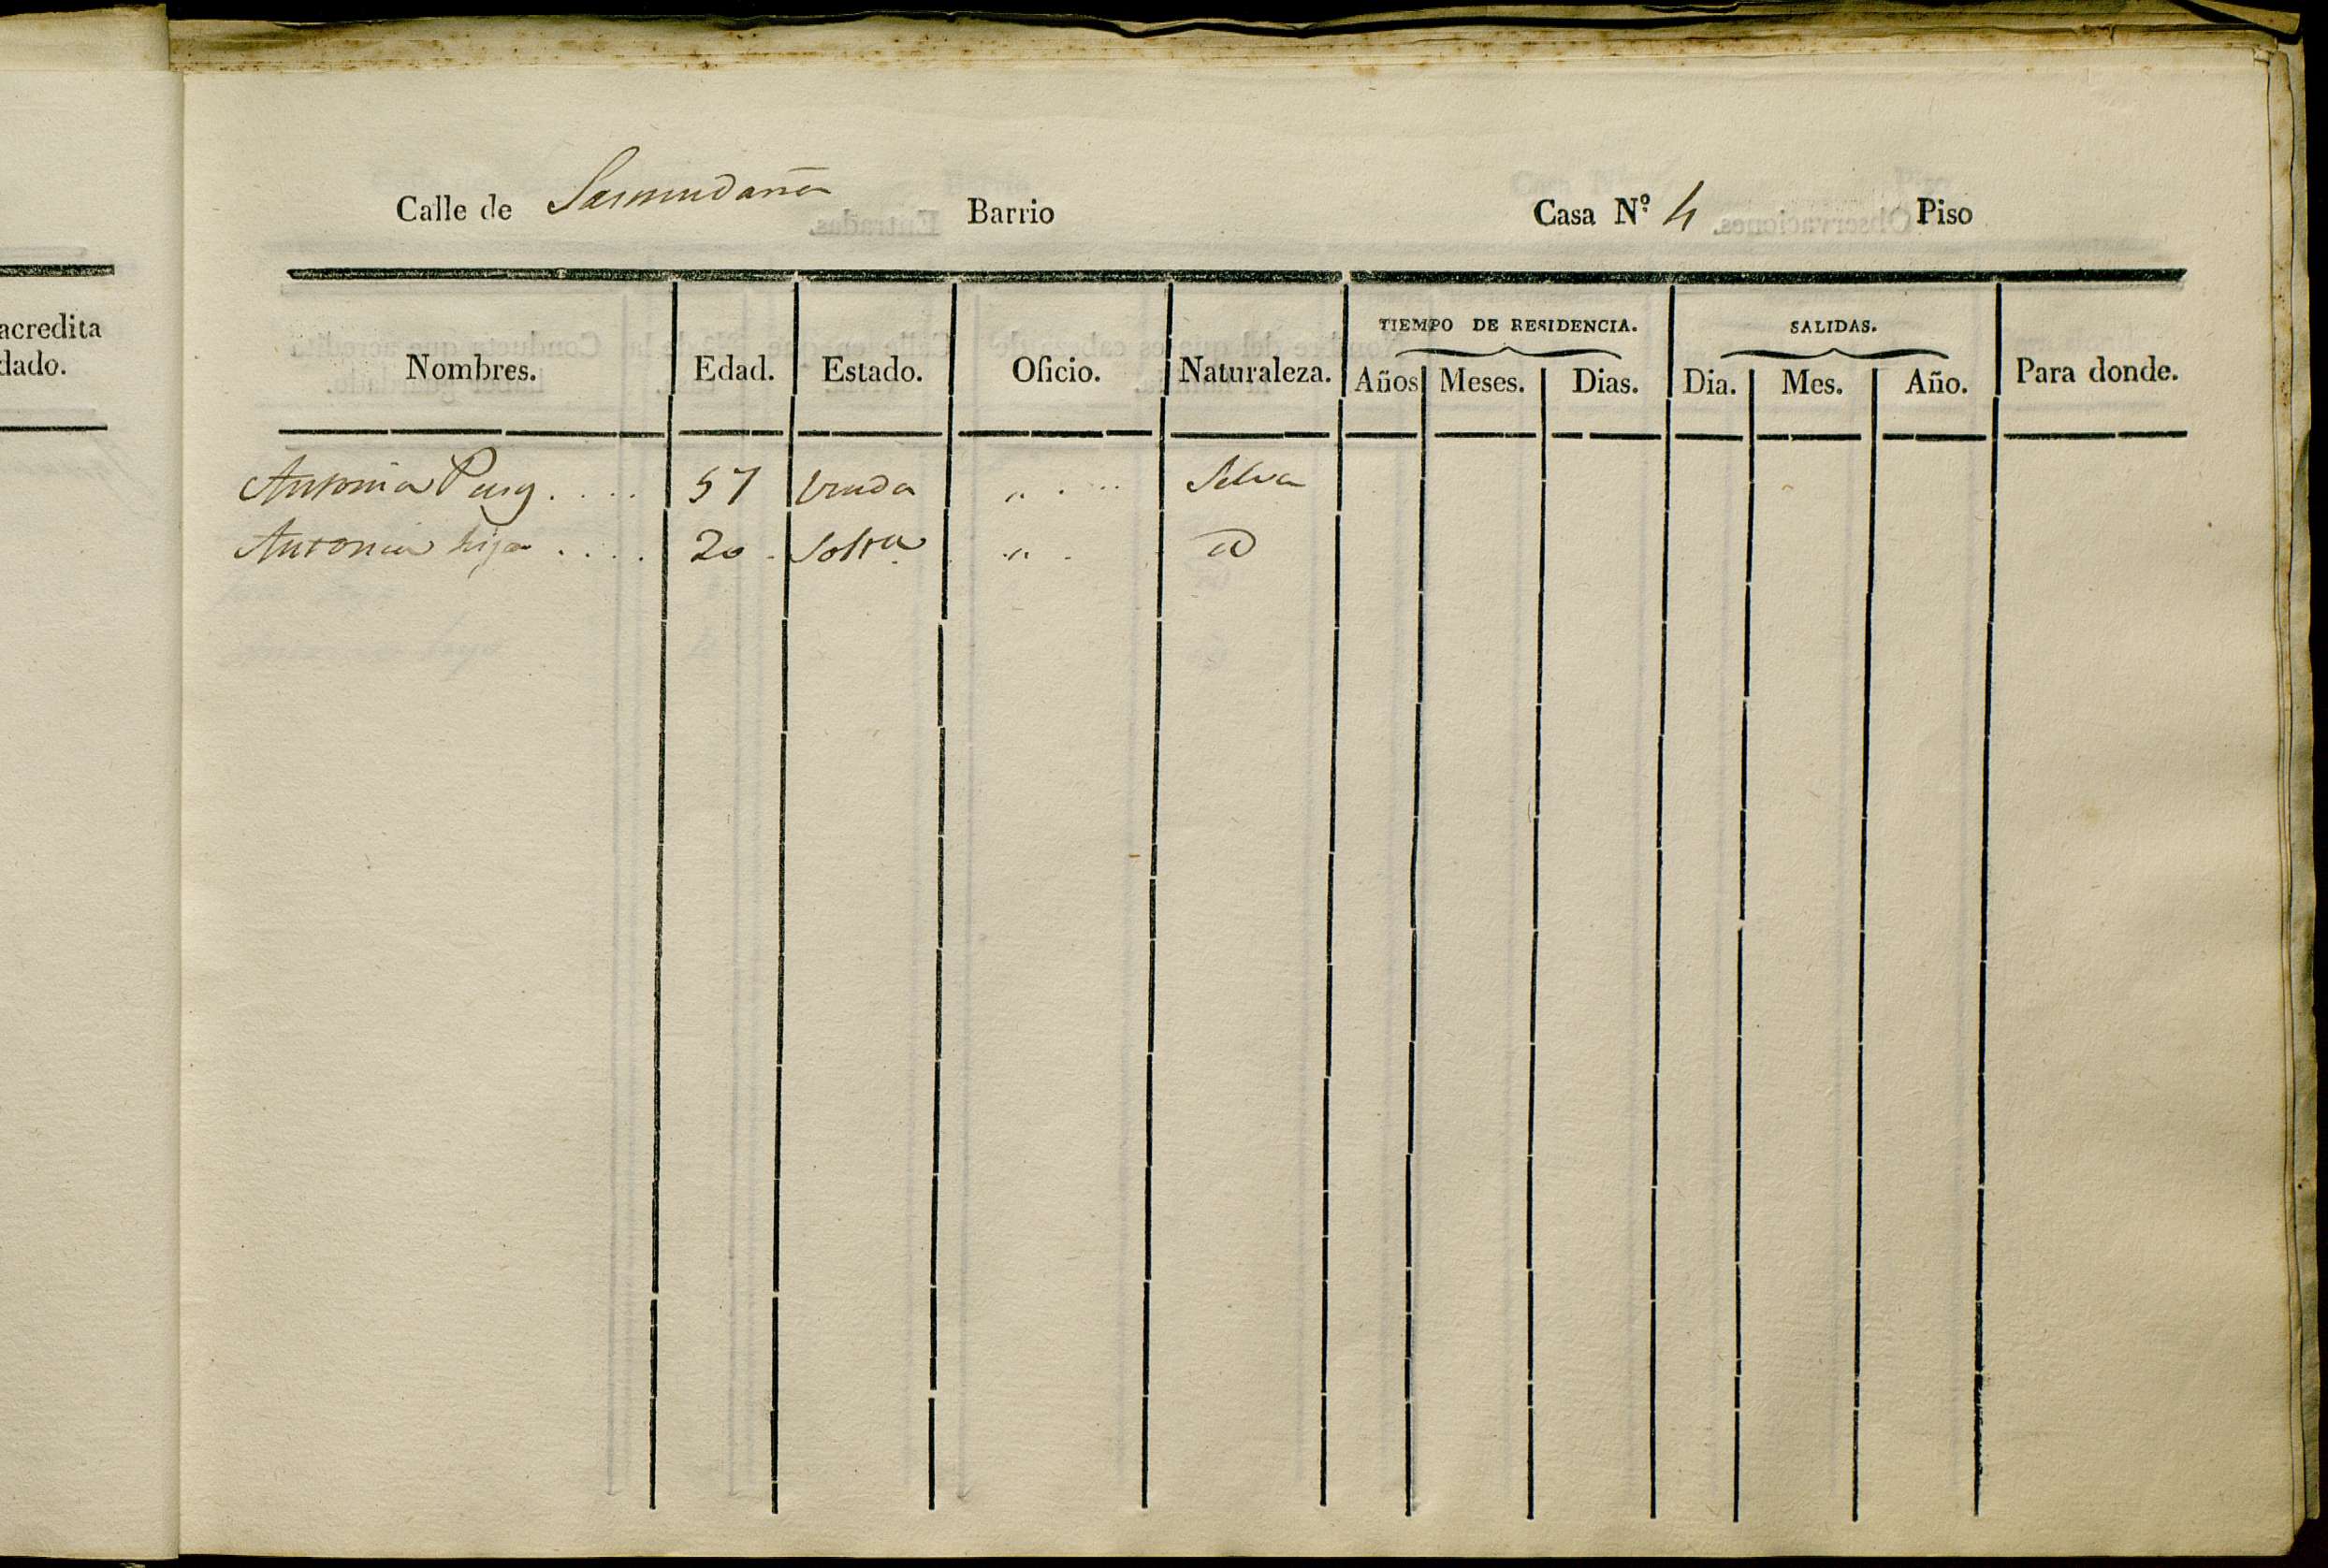 Calle de Sarmudaña Barrio Casa Nº 4 Piso
acredita
dado.
TIEMPO DE RESIDENCIA. SALIDAS.
Nombres. Edad. Estado. Oficio. Naturaleza. Años Meses. Dias. Dia. Mes. Año. Para donde.
Antonia Puig . . . . 57 Viuda " . . . . Selva
Antonia hija . . . . 20 . Soltra " . id